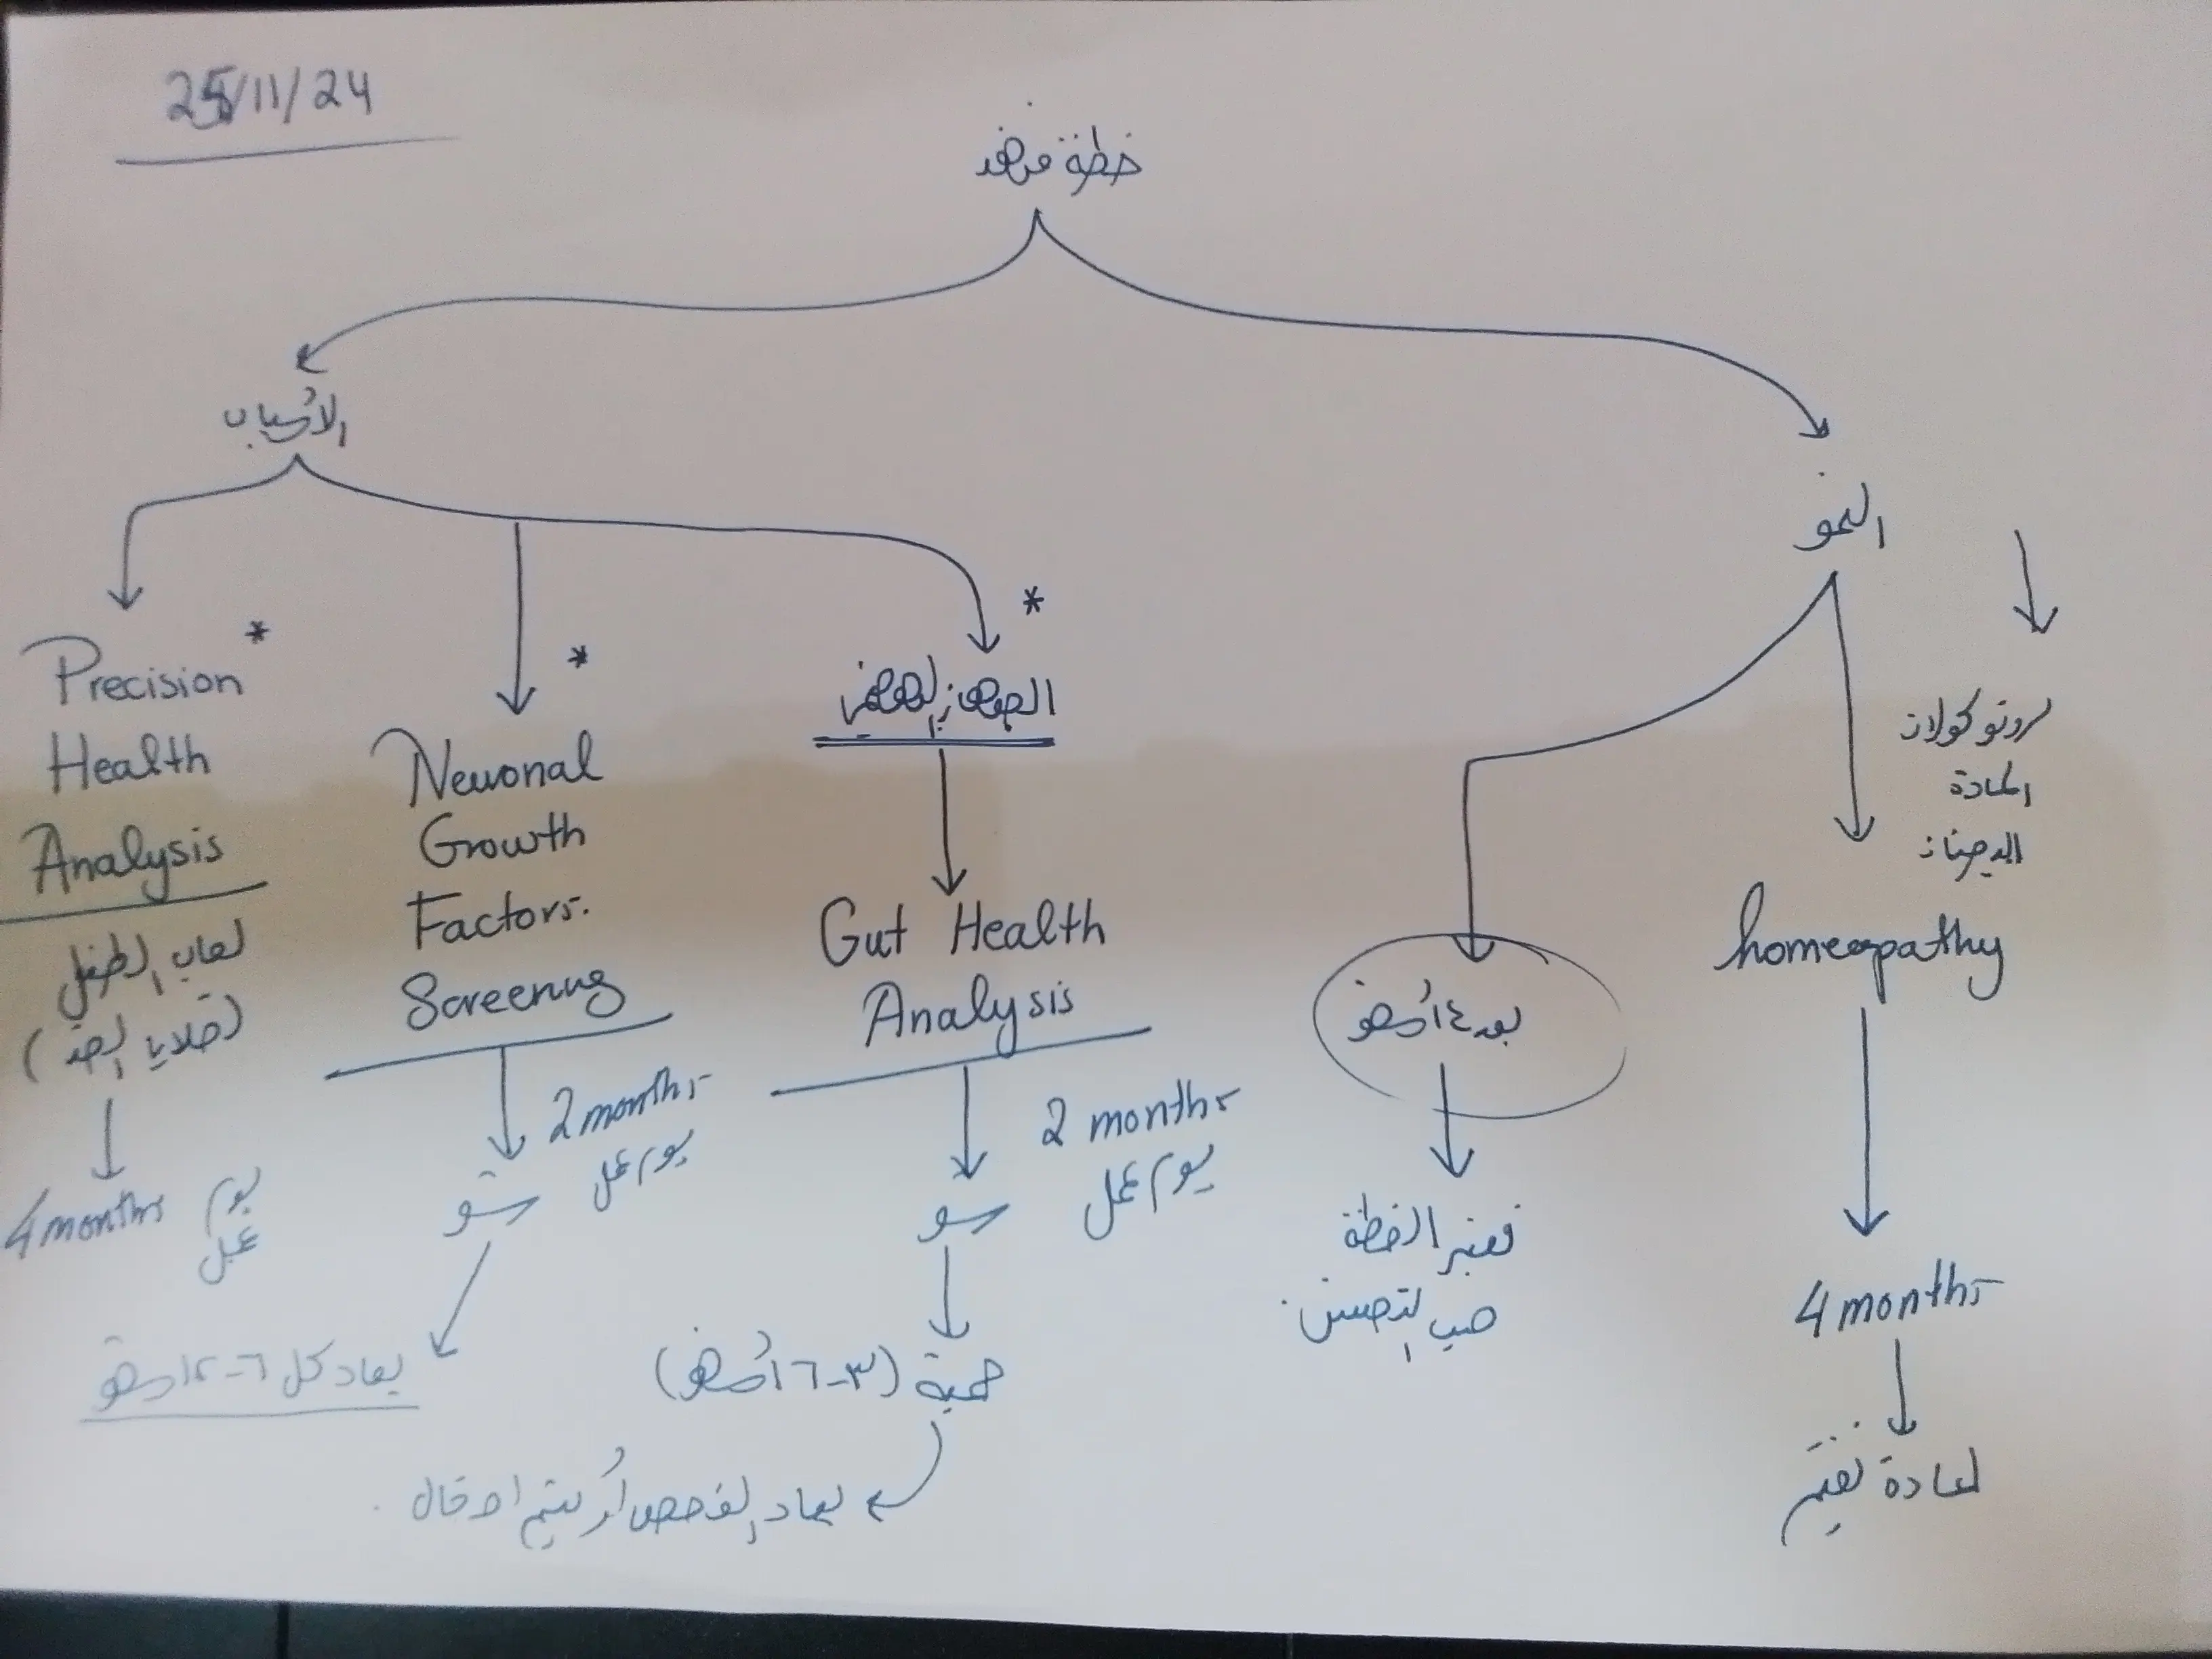 25/11/24
خطة فهد
الأسباب
النمو
Precision *
Health
Analysis
لعاب الطفل
(خلايا الخد)
4 months يوم
عمل
*
Neuronal
Growth
Factors.
Screening
2 months
يوم عمل
يعاد كل ٦-١٢ شهر
*
الجهاز الهضمي
Gut Health
Analysis
2 months
يوم عمل
حمية (٣-٦ أشهر)
يعاد الفحص أو يتم ادخال
بعد ٤ أشهر
الخطة
حسب التحسن.
بروتوكولات
المادة
homeopathy
4 months
اعادة تقييم